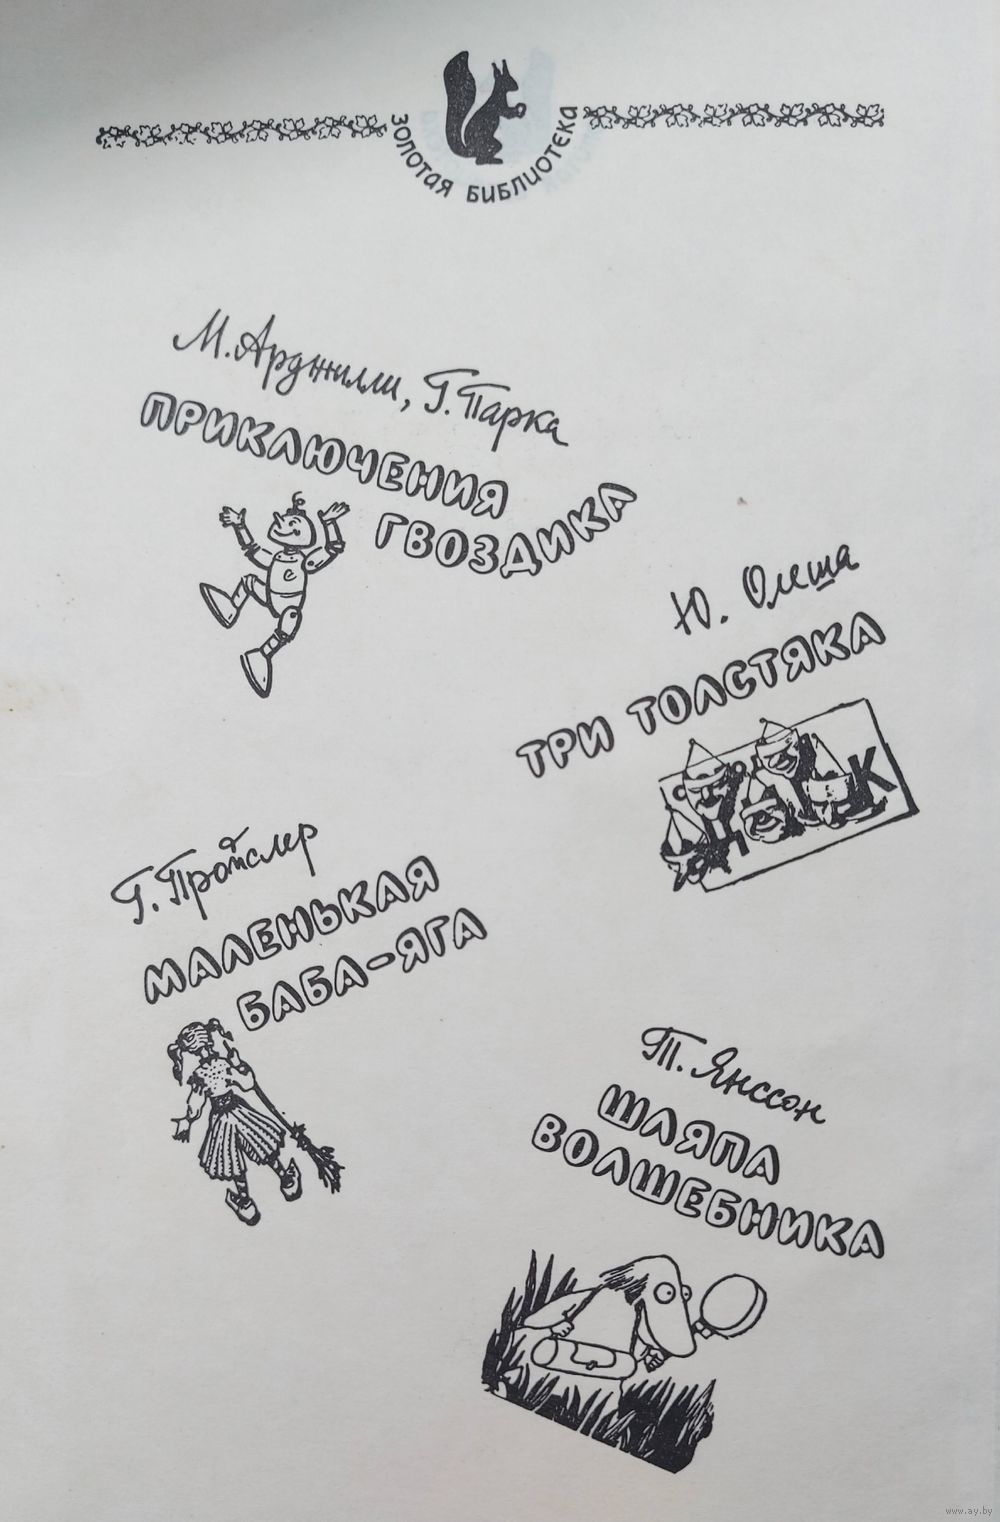 ЗОЛОТАЯ БИБЛИОТЕКА
М. Арджилли, Г. Парка
ПРИКЛЮЧЕНИЯ
ГВОЗДИКА
Ю. Олеша
ТРИ ТОЛСТЯКА
К
Г. Пройслер
МАЛЕНЬКАЯ
БАБА-ЯГА
Т. Янссон
ШЛЯПА
ВОЛШЕБНИКА
www.ay.by